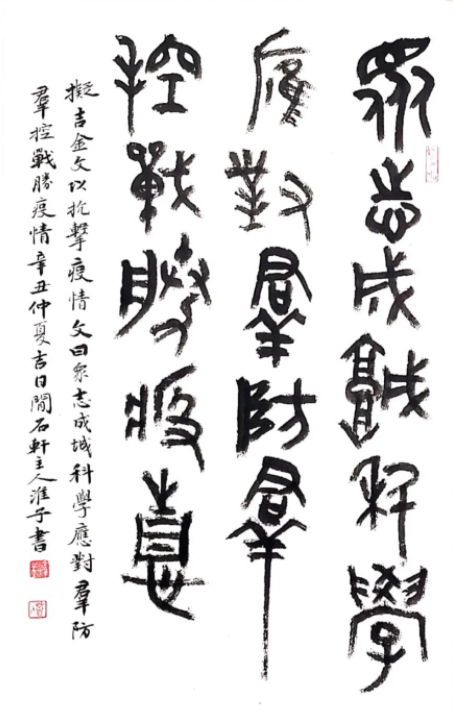 眾志成城科學
應對羣防羣
控戰勝疫情
擬吉金文以抗擊疫情文曰眾志成城科學應對羣防
羣控戰勝疫情辛丑仲夏吉日閒石軒主人淮子書